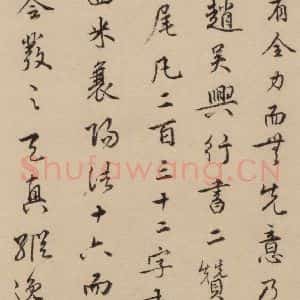 有全力而無先意乃
趙吳興行書二贊
尾凡二百三十二字
米襄陽法十六而
今敩之天真縱逸
Shufawang.CN